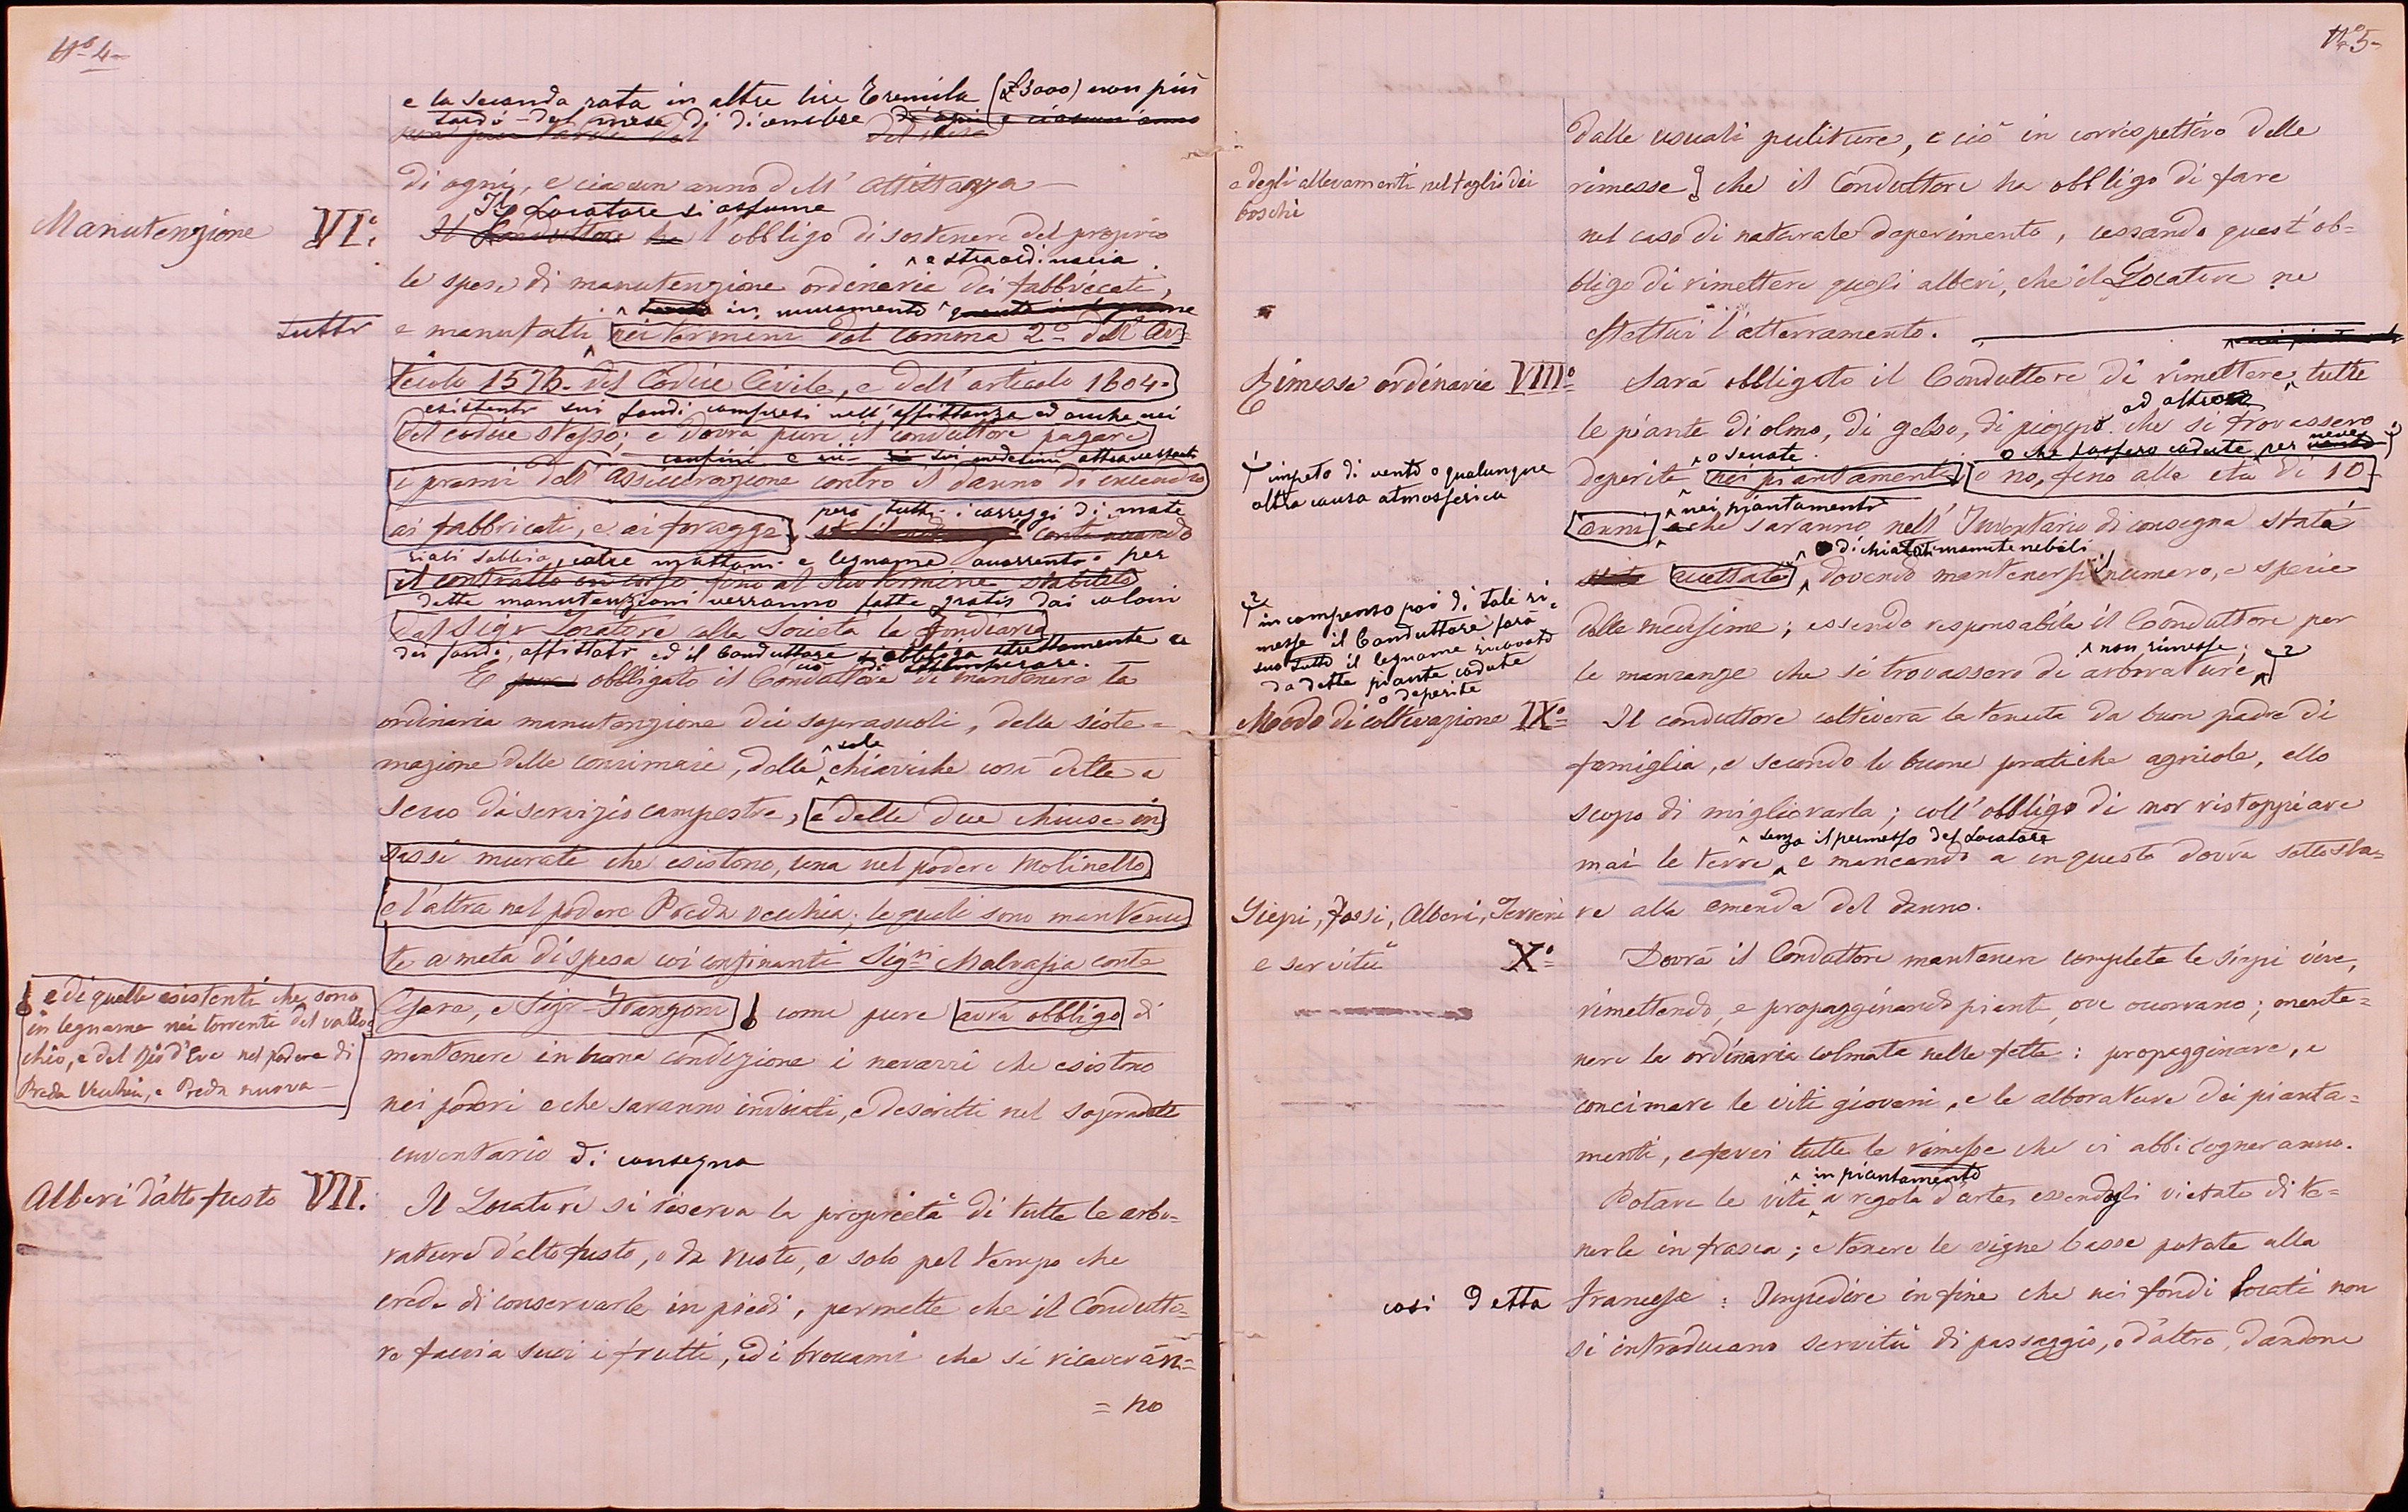 Nº 4-
e la seconda rata in altre lire Tremila (£ 3000) non più
tardi del mese di dicembre di ogni e ciascun anno
di ogni, e ciascun anno dell' affittanza
Il Locatore si assume
Manutenzione VI.° Il Conduttore ha l'obbligo di sostenere del proprio
e straordinaria
le spese di manutenzione ordinaria dei fabbricati,
in muramento
tutti e manufatti nei termini dal comma 2º dell' Ar-
ticolo 1576. del Codice Civile, e dell' articolo 1604.
esistenti sui fondi compresi nell' affittanza ed anche nei
del codice stesso; e dovrà pure il conduttore pagare
confini e sui medesimi attraversanti
i premi dell' assicurazione contro il danno di incendio
però tutti i carreggi di mate
ai fabbricati, e ai foraggi, continuando
riali sabbia, calce mattoni e legname occorrenti per
il contratto in corso fino al suo termine stabilito
dette manutenzioni verranno fatte gratis dai coloni
dal Sigr Locatore colla Società la Fondiaria
dei fondi affittati ed il Conduttore si obbliga strettamente a
ciò di ottemperare.
E pure obbligato il Conduttore di mantenere la
ordinaria manutenzione dei soprasuoli, della siste=
sole
mazione delle concimaie, delle chiaviche così dette a
secco di servizio campestre, e delle due chiuse in
sassi murate che esistono, una nel podere Molinello
e l'altra nel podere Preda vecchia, le quali sono mantenu
te a metà di spesa coi confinanti Sigri Malvasia conte
Cesare, e Sigr Frangoni come pure avrà obbligo di
e di quelle esistenti che sono
in legname nei torrenti del vallec-
chio, e del Rio d'Eva nel podere di
Preda Vecchia, e Preda nuova
mantenere in buona condizione i navazzi che esistono
nei poderi e che saranno indicati, e descritti nel sopradetto
inventario di consegna
Alberi d'alto fusto VII. Il Locatore si riserva la proprietà di tutte le arbo=
rature d'alto fusto, o da ruote, e solo pel tempo che
crede di conservarle in piedi, permette che il Condutto=
re faccia suoi i frutti, ed i broccami che si ricaveran=
= no
Nº 5-
dalle usuali puliture, e ciò in corrispettivo delle
e degli allevamenti nel taglio dei
boschi
rimesse che il Conduttore ha obbligo di fare
nel caso di naturale deperimento, cessando quest' ob=
bligo di rimettere quegli alberi, che il Locatore ne
effettui l'atterramento.
Rimesse ordinarie VIIIº Sarà obbligato il Conduttore di rimettere tutte
ad altro
le piante di olmo, di gelso, di pioppo che si trovassero
o seccate o che fossero cadute per neve
deperite nei piantamenti o no, fino alla età di 10
1) impeto di vento o qualunque
altra causa atmosferica
nei piantamenti
anni e che saranno nell' Inventario di consegna state
dichiarati manutenebili
state accettate dovendo mantenersi numero, e specie
delle medesime; essendo responsabile il Conduttore per
non rimesse
le mancanze che si trovassero di arborature
2 in compenso poi di tale ri-
messe il Conduttore farà
suo tutto il legname ricavato
da dette piante cadute
o deperite
Modo di coltivazione IXº Il conduttore coltiverà la tenuta da buon padre di
famiglia, e secondo le buone pratiche agricole, allo
scopo di migliorarla; coll' obbligo di non ristoppiare
senza il permesso del Locatore
mai le terre, e mancando a in questo dovrà sottosta=
re alla emenda del danno.
Siepi, Fossi, Alberi, Terreni
e servitù Xº Dovrà il Conduttore mantenere complete le siepi vive,
rimettendo, e propagginando piante, ove occorrano; mante=
nere la ordinaria colmata nelle fette: propagginare, e
concimare le viti giovani, e le alborature dei pianta=
menti, e farvi tutte le rimesse che vi abbisogneranno.
in piantamento
Potare le viti a regola d'arte, essendogli vietato di te=
nerle in frasca; e tenere le vigne basse potate alla
così detta Francese: Impedire infine che nei fondi locati non
si introducano servitù di passaggio, o d'altro, dandone